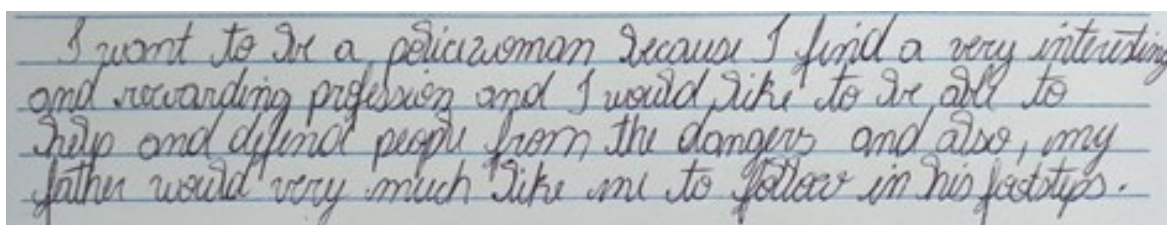 I want to be a policewoman because I find a very interesting
and rewarding profession and I would like to be able to
help and defend people from the dangers and also, my
father would very much like me to follow in his footsteps.